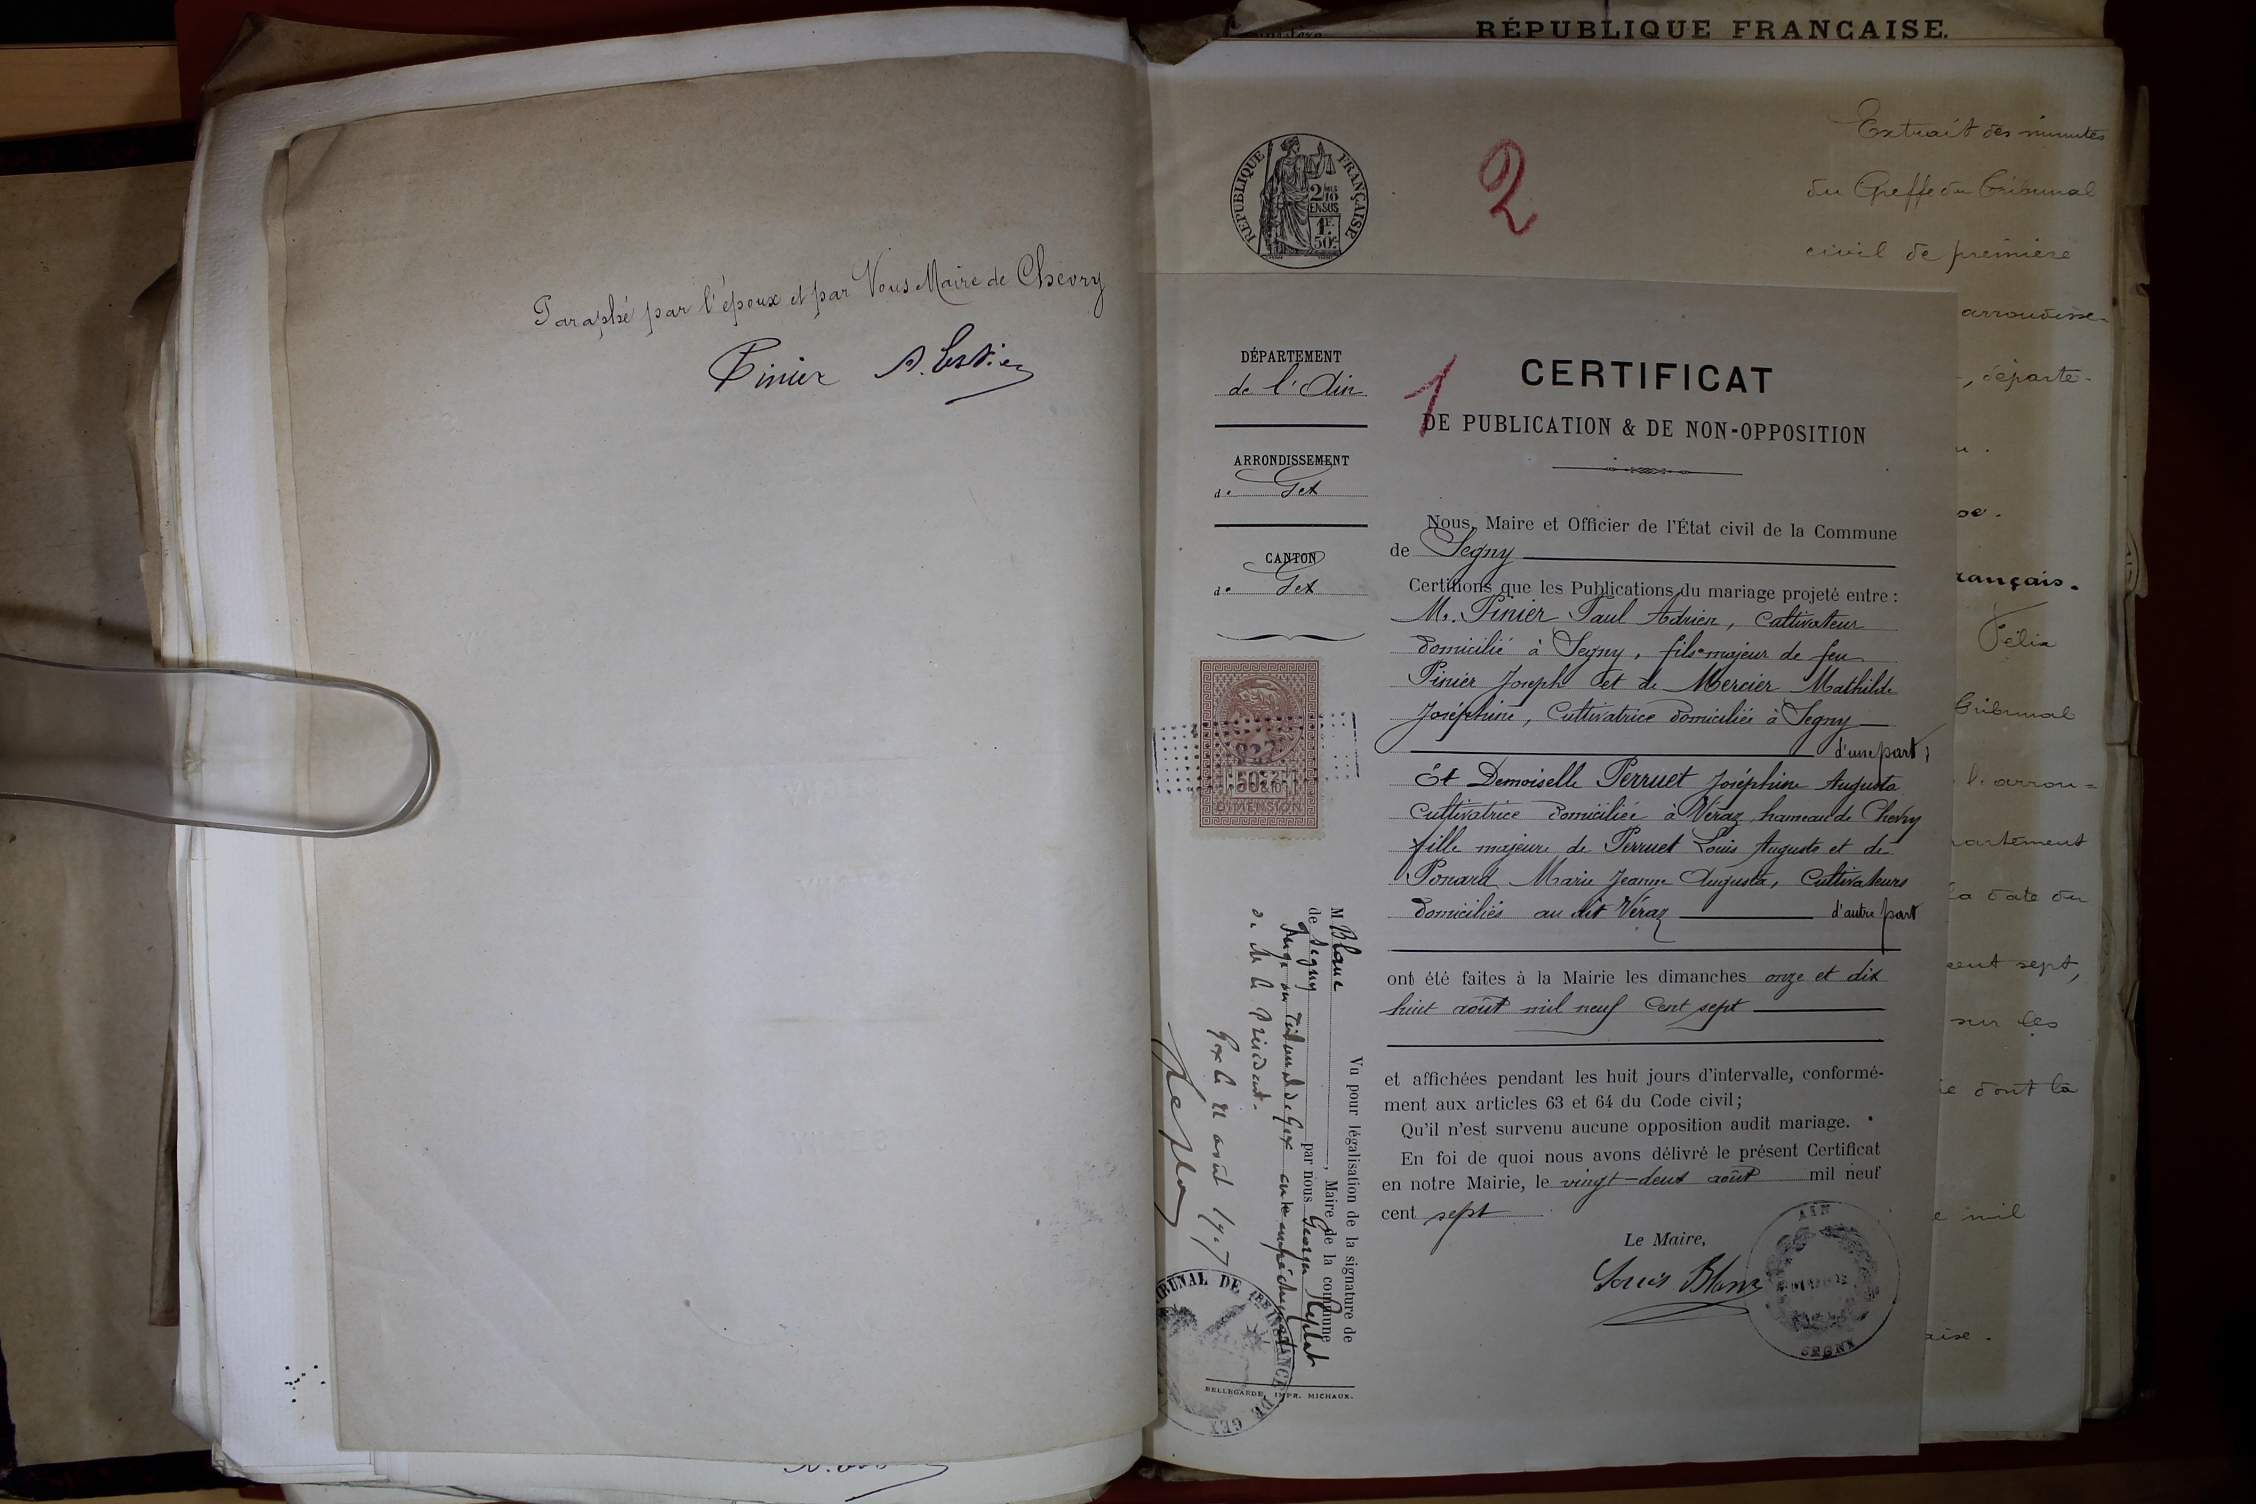 Paraphé par l'époux et par Nous Maire de Chevry
Pinier
RÉPUBLIQUE FRANÇAISE.
RÉPUBLIQUE FRANÇAISE
2/10 EN SUS
1F. 50c.
2
Extrait des minutes
du Greffe du Tribunal
civil de première
arrondisse-
, départe-
rançais.
Félix
Tribunal
l'arron=
artement
la date du
cent sept,
sur les
ie dont la
e mil
aise.
DÉPARTEMENT
de l'Ain
ARRONDISSEMENT
de Gex
CANTON
de Gex
1
CERTIFICAT
DE PUBLICATION & DE NON-OPPOSITION
Nous, Maire et Officier de l'État civil de la Commune
de Segny
Certifions que les Publications du mariage projeté entre :
Mr. Pinier Paul Adrien, Cultivateur
domicilié à Segny, fils majeur de feu
Pinier Joseph et de Mercier Mathilde
Joséphine, Cultivatrice domiciliée à Segny
d'une part ;
Et Demoiselle Perruet Joséphine Augusta
Cultivatrice domiciliée à Véraz, hameau de Chevry
fille majeure de Perruet Louis Auguste et de
Ponard Marie Jeanne Augusta, Cultivateurs
domiciliés au dit Véraz d'autre part
ont été faites à la Mairie les dimanches onze et dix
huit août mil neuf cent sept
et affichées pendant les huit jours d'intervalle, conformé-
ment aux articles 63 et 64 du Code civil ;
Qu'il n'est survenu aucune opposition audit mariage.
En foi de quoi nous avons délivré le présent Certificat
en notre Mairie, le vingt-deux août mil neuf
cent sept
Le Maire,
Louis Blanc
AIN
SEGNY
50c
DIMENSION
Vu pour légalisation de la signature de
M Blanc, Maire de la commune
de Segny par nous Georges Replat
Juge au Tribunal de Gex en l'empêchement
de M. le Président.
Gex le 22 août 1907
Replat
TRIBUNAL DE 1ère INSTANCE DE GEX
BELLEGARDE, IMPR. MICHAUX.